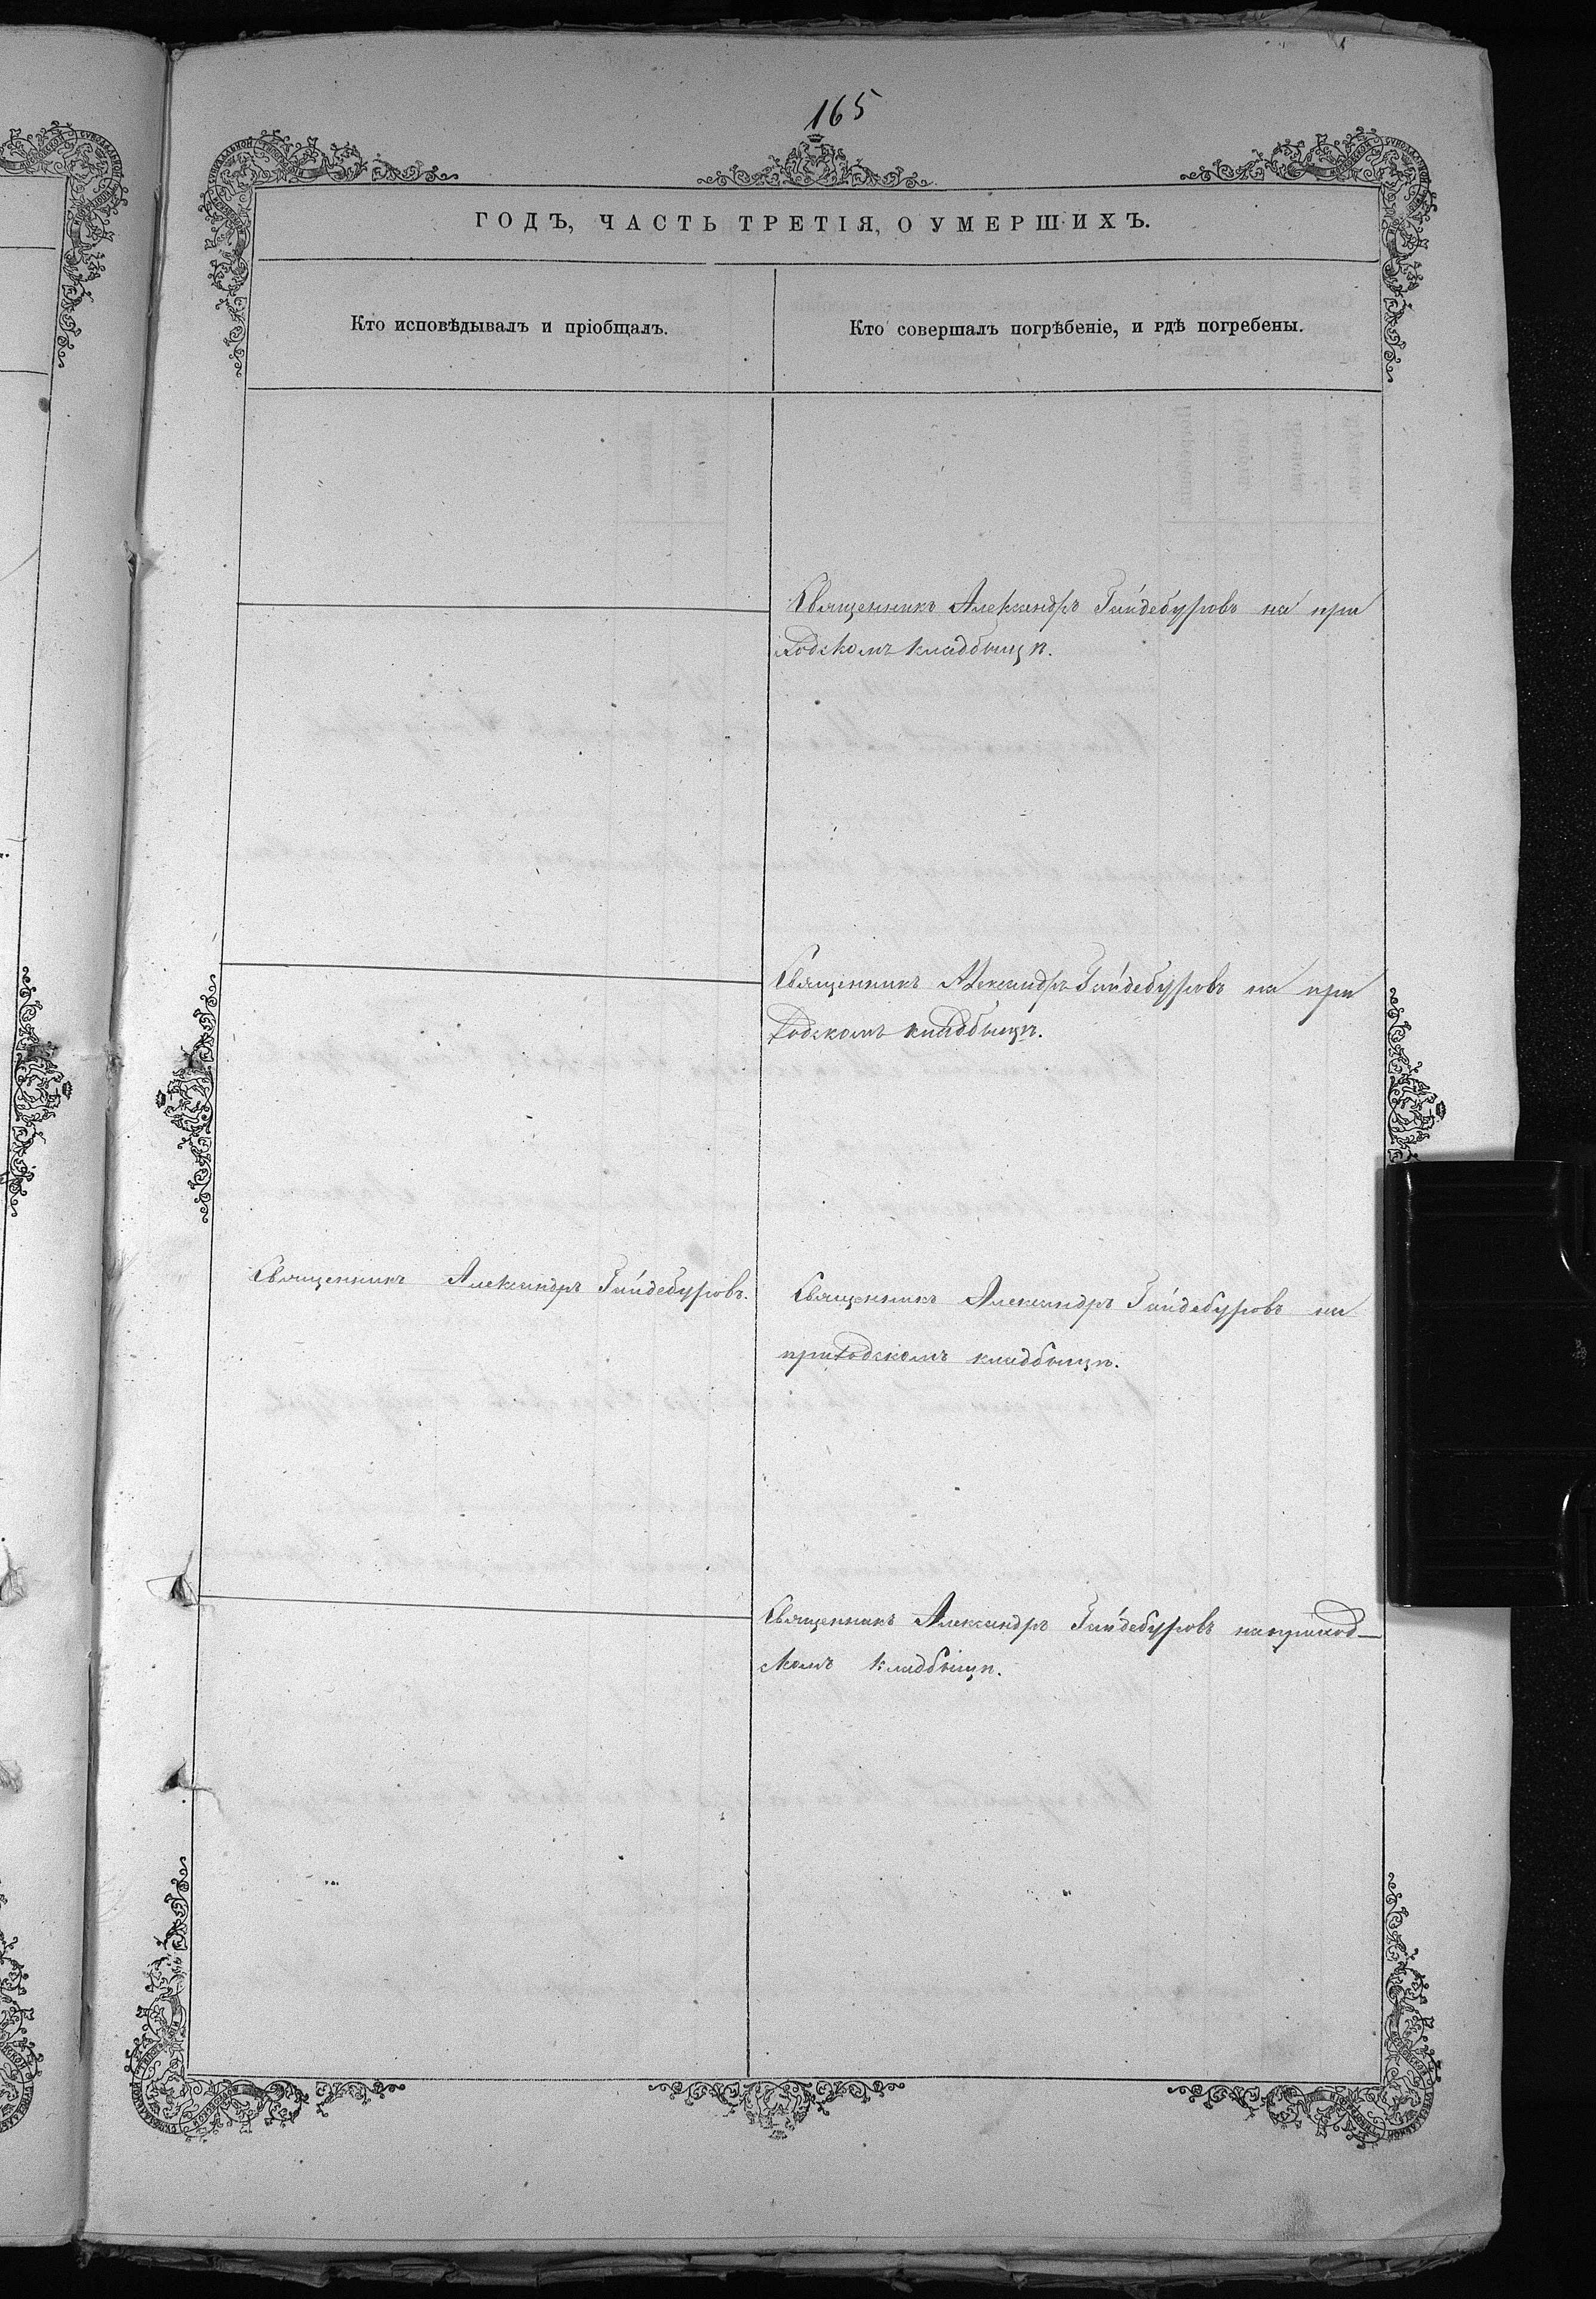 165
ГОДЪ, ЧАСТЬ ТРЕТІЯ, О УМЕРШИХЪ.
Кто исповѣдывалъ и пріобщалъ.
Кто совершалъ погрѣбеніе, и гдѣ погребены.
Священникъ Александръ Гайдебуровъ на при
ходскомъ кладбищѣ.
Священникъ Александръ Гайдебуровъ на при
ходскомъ кладбищѣ.
Священникъ Александръ Гайдебуровъ.
Священникъ Александръ Гайдебуровъ на
приходскомъ кладбищѣ.
Священникъ Александръ Гайдебуровъ на приход–
скомъ кладбищѣ.